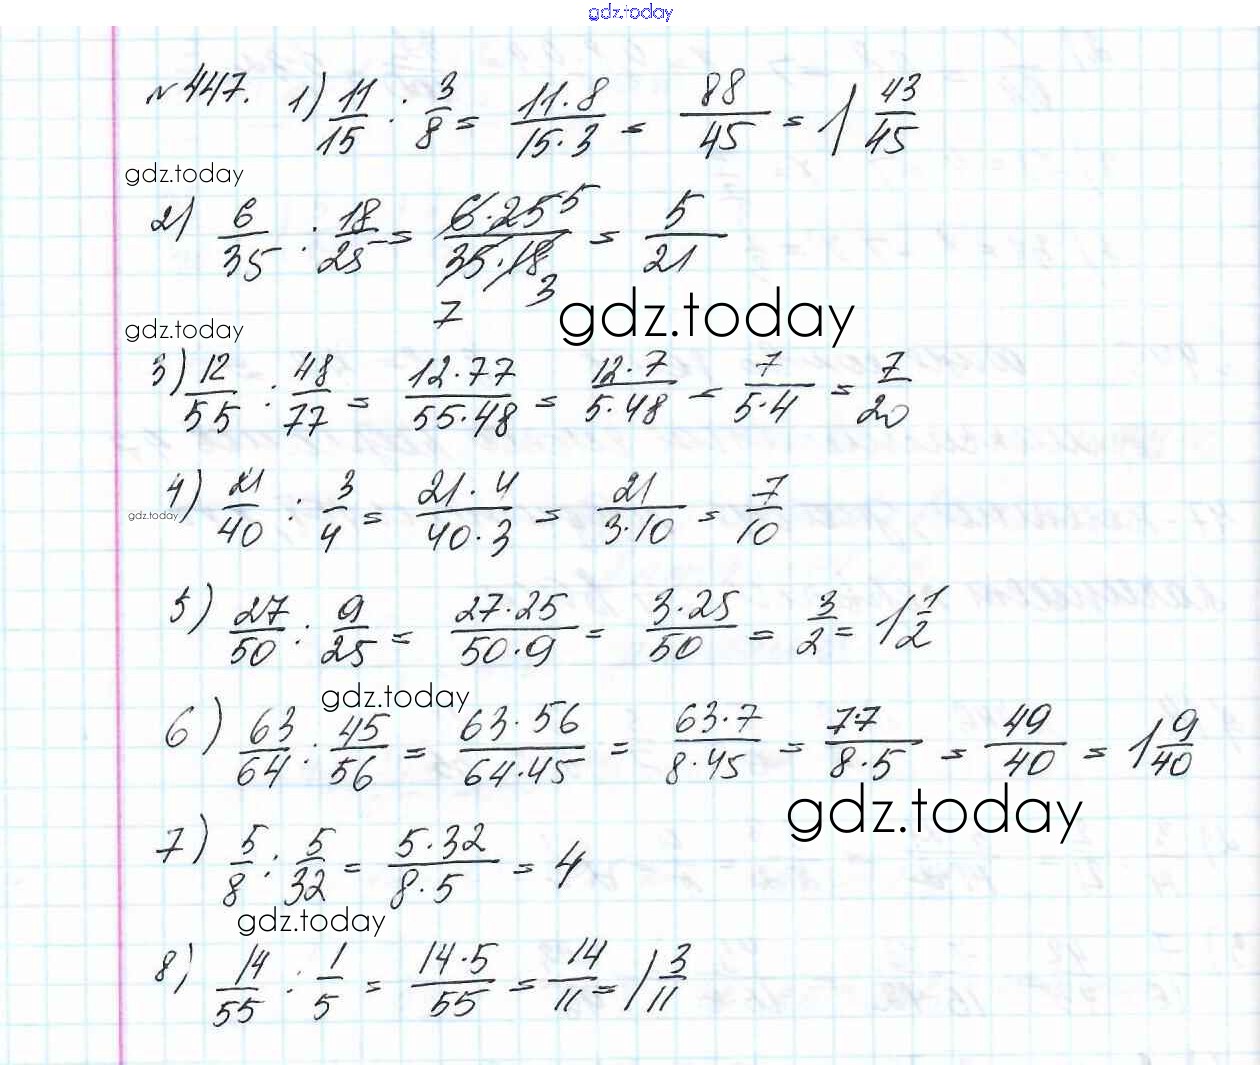 gdz.today
№ 447. 1) 11/15 : 3/8 = 11·8/15·3 = 88/45 = 1 43/45
gdz.today
2) 6/35 : 18/25 = 6·25 5/35·18 7 3 = 5/21
gdz.today
gdz.today
3) 12/55 : 48/77 = 12·77/55·48 = 12·7/5·48 = 7/5·4 = 7/20
4) 21/40 : 3/4 = 21·4/40·3 = 21/3·10 = 7/10
gdz.today
5) 27/50 : 9/25 = 27·25/50·9 = 3·25/50 = 3/2 = 1 1/2
gdz.today
6) 63/64 : 45/56 = 63·56/64·45 = 63·7/8·45 = 7·7/8·5 = 49/40 = 1 9/40
gdz.today
7) 5/8 : 5/32 = 5·32/8·5 = 4
gdz.today
8) 14/55 : 1/5 = 14·5/55 = 14/11 = 1 3/11